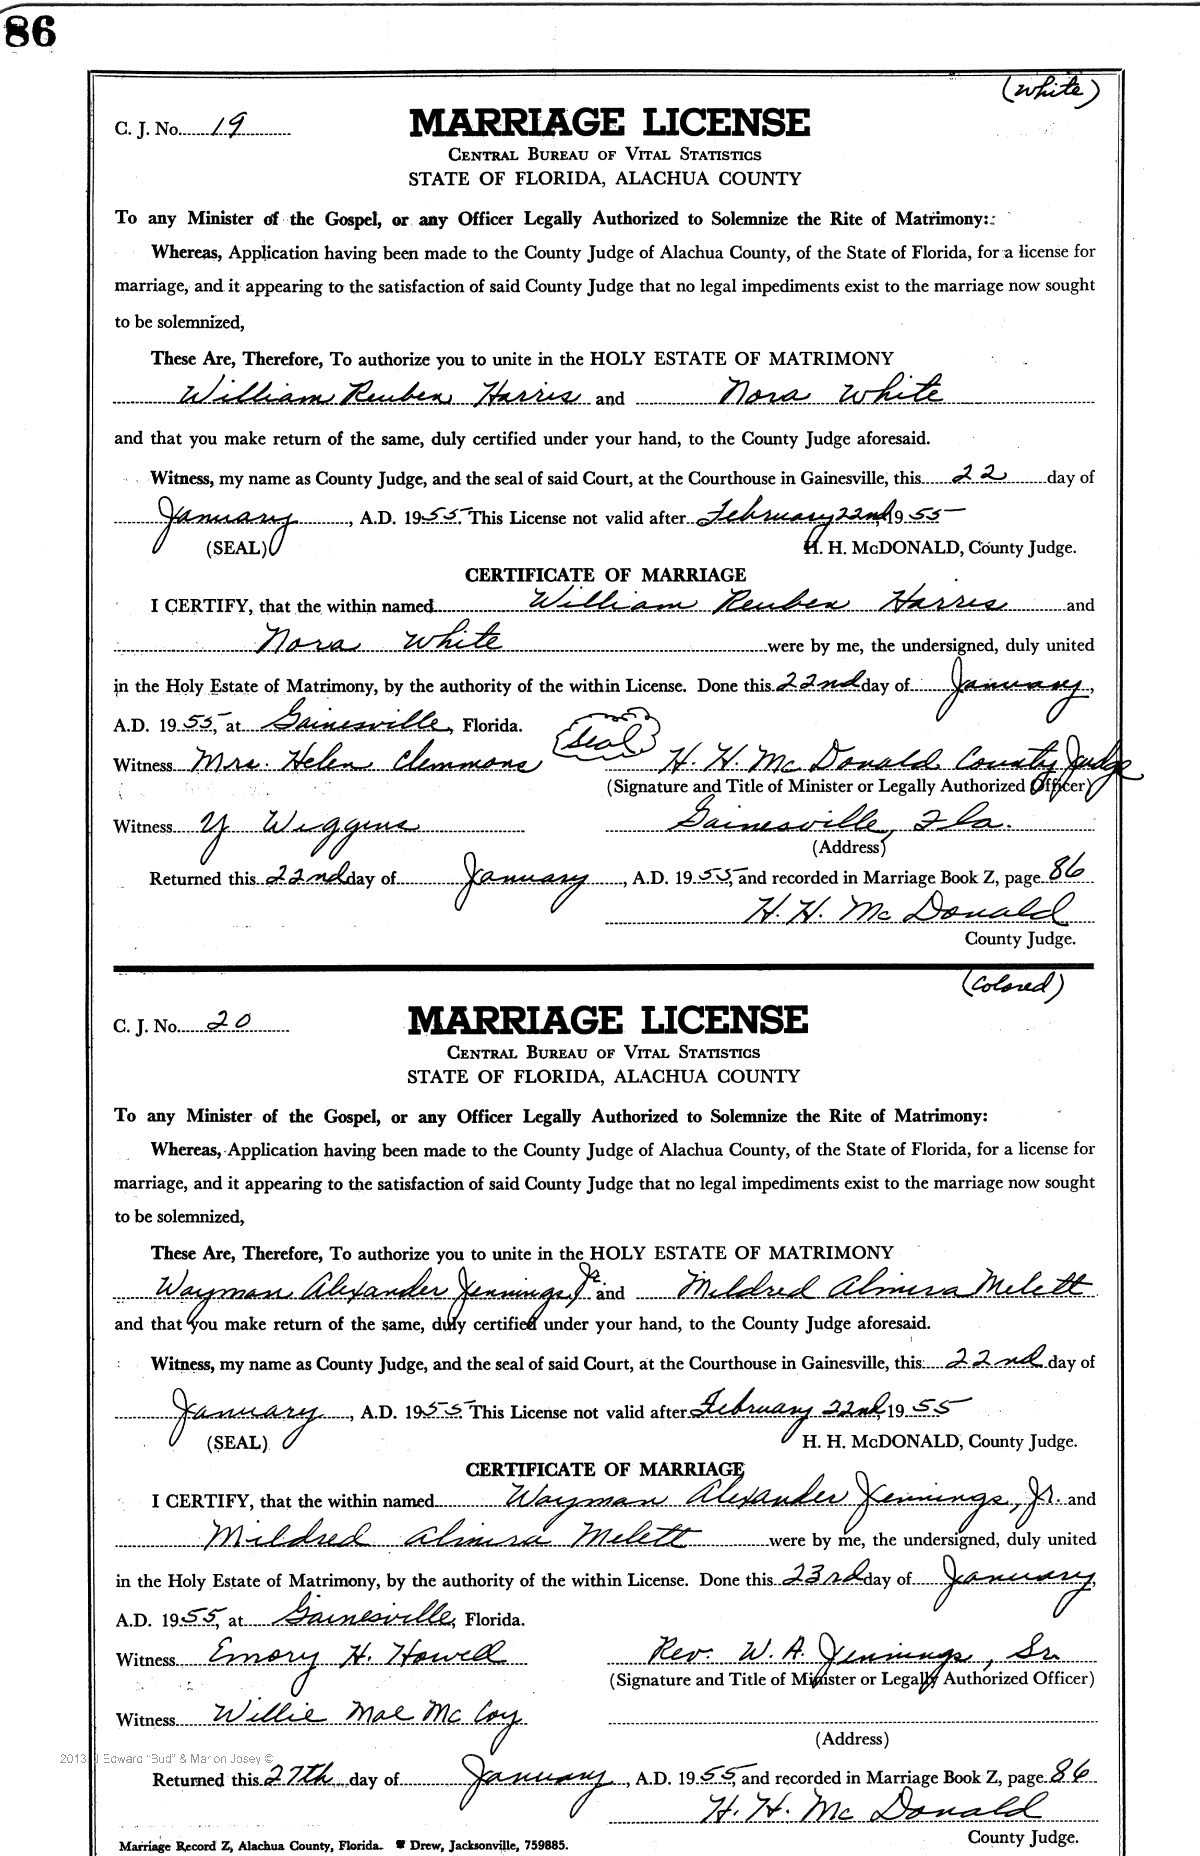 86
(White)
C. J. No. 19
MARRIAGE LICENSE
CENTRAL BUREAU OF VITAL STATISTICS
STATE OF FLORIDA, ALACHUA COUNTY
To any Minister of the Gospel, or any Officer Legally Authorized to Solemnize the Rite of Matrimony:
Whereas, Application having been made to the County Judge of Alachua County, of the State of Florida, for a license for
marriage, and it appearing to the satisfaction of said County Judge that no legal impediments exist to the marriage now sought
to be solemnized,
These Are, Therefore, To authorize you to unite in the HOLY ESTATE OF MATRIMONY
William Reuben Harris and Nora White
and that you make return of the same, duly certified under your hand, to the County Judge aforesaid.
Witness, my name as County Judge, and the seal of said Court, at the Courthouse in Gainesville, this 22 day of
January, A.D. 1955. This License not valid after February 22nd, 1955
(SEAL) H. H. McDONALD, County Judge.
CERTIFICATE OF MARRIAGE
I CERTIFY, that the within named William Reuben Harris and
Nora White were by me, the undersigned, duly united
in the Holy Estate of Matrimony, by the authority of the within License. Done this 22nd day of January,
A.D. 1955, at Gainesville, Florida.
Witness Mrs. Helen Clemmons (Seal) H. H. McDonald County Judge
(Signature and Title of Minister or Legally Authorized Officer)
Witness Y Wiggins Gainesville, Fla.
(Address)
Returned this 22nd day of January, A.D. 1955, and recorded in Marriage Book Z, page 86
H. H. McDonald
County Judge.
(Colored)
C. J. No. 20
MARRIAGE LICENSE
CENTRAL BUREAU OF VITAL STATISTICS
STATE OF FLORIDA, ALACHUA COUNTY
To any Minister of the Gospel, or any Officer Legally Authorized to Solemnize the Rite of Matrimony:
Whereas, Application having been made to the County Judge of Alachua County, of the State of Florida, for a license for
marriage, and it appearing to the satisfaction of said County Judge that no legal impediments exist to the marriage now sought
to be solemnized,
These Are, Therefore, To authorize you to unite in the HOLY ESTATE OF MATRIMONY
Wayman Alexander Jennings, Jr. and Mildred Almira Melett
and that you make return of the same, duly certified under your hand, to the County Judge aforesaid.
Witness, my name as County Judge, and the seal of said Court, at the Courthouse in Gainesville, this 22nd day of
January, A.D. 1955. This License not valid after February 22nd, 1955
(SEAL) H. H. McDONALD, County Judge.
CERTIFICATE OF MARRIAGE
I CERTIFY, that the within named Wayman Alexander Jennings, Jr. and
Mildred Almira Melett were by me, the undersigned, duly united
in the Holy Estate of Matrimony, by the authority of the within License. Done this 23rd day of January,
A.D. 1955, at Gainesville, Florida.
Witness Emory H. Howell Rev. W. A. Jennings, Sr.
(Signature and Title of Minister or Legally Authorized Officer)
Witness Willie Mae McCoy
(Address)
2013 J Edward "Bud" & Marion Josey ©
Returned this 27th day of January, A.D. 1955, and recorded in Marriage Book Z, page 86
H. H. McDonald
County Judge.
Marriage Record Z, Alachua County, Florida. Drew, Jacksonville, 759885.